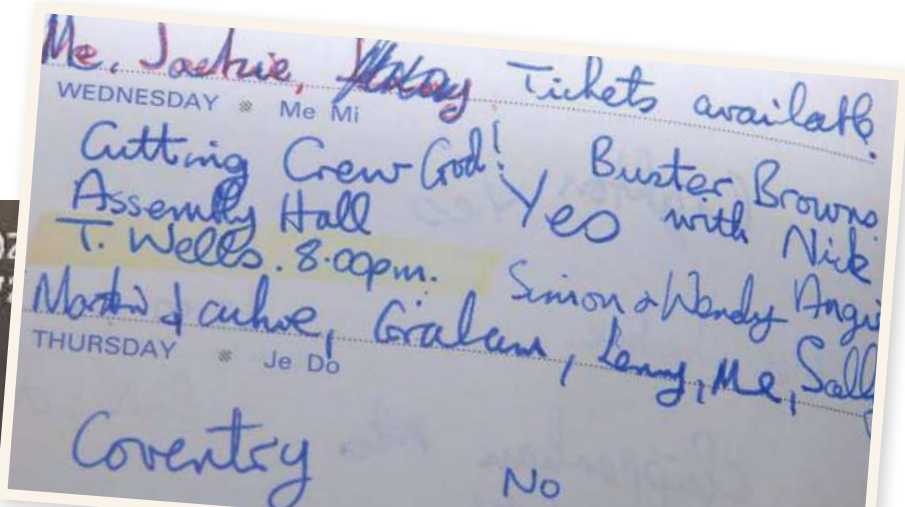 Me, Jackie, Tickets available.
WEDNESDAY Me Mi
Cutting Crew God! Buster Browns
Assembly Hall Yes with Nick
T. Wells. 8.00pm. Simon & Wendy Angi
Martin & Jackie, Graham, Lenny, Me, Sally
THURSDAY Je Do
Coventry No